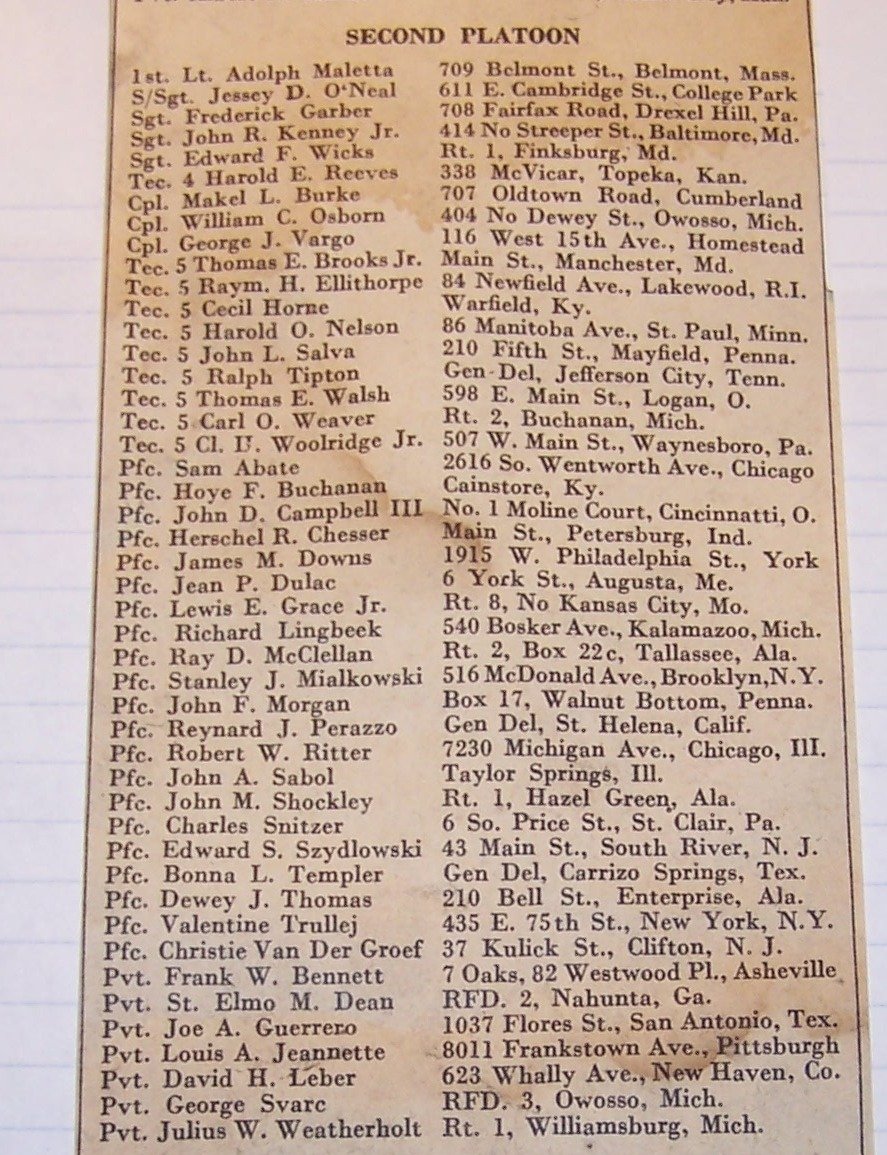 SECOND PLATOON
1st. Lt. Adolph Maletta 709 Belmont St., Belmont, Mass.
S/Sgt. Jessey D. O'Neal 611 E. Cambridge St., College Park
Sgt. Frederick Garber 708 Fairfax Road, Drexel Hill, Pa.
Sgt. John R. Kenney Jr. 414 No Streeper St., Baltimore, Md.
Sgt. Edward F. Wicks Rt. 1, Finksburg, Md.
Tec. 4 Harold E. Reeves 338 McVicar, Topeka, Kan.
Cpl. Makel L. Burke 707 Oldtown Road, Cumberland
Cpl. William C. Osborn 404 No Dewey St., Owosso, Mich.
Cpl. George J. Vargo 116 West 15th Ave., Homestead
Tec. 5 Thomas E. Brooks Jr. Main St., Manchester, Md.
Tec. 5 Raym. H. Ellithorpe 84 Newfield Ave., Lakewood, R.I.
Tec. 5 Cecil Horne Warfield, Ky.
Tec. 5 Harold O. Nelson 86 Manitoba Ave., St. Paul, Minn.
Tec. 5 John L. Salva 210 Fifth St., Mayfield, Penna.
Tec. 5 Ralph Tipton Gen Del, Jefferson City, Tenn.
Tec. 5 Thomas E. Walsh 598 E. Main St., Logan, O.
Tec. 5 Carl O. Weaver Rt. 2, Buchanan, Mich.
Tec. 5 Cl. U. Woolridge Jr. 507 W. Main St., Waynesboro, Pa.
Pfc. Sam Abate 2616 So. Wentworth Ave., Chicago
Pfc. Hoye F. Buchanan Cainstore, Ky.
Pfc. John D. Campbell III No. 1 Moline Court, Cincinnatti, O.
Pfc. Herschel R. Chesser Main St., Petersburg, Ind.
Pfc. James M. Downs 1915 W. Philadelphia St., York
Pfc. Jean P. Dulac 6 York St., Augusta, Me.
Pfc. Lewis E. Grace Jr. Rt. 8, No Kansas City, Mo.
Pfc. Richard Lingbeek 540 Bosker Ave., Kalamazoo, Mich.
Pfc. Ray D. McClellan Rt. 2, Box 22c, Tallassee, Ala.
Pfc. Stanley J. Mialkowski 516 McDonald Ave., Brooklyn, N.Y.
Pfc. John F. Morgan Box 17, Walnut Bottom, Penna.
Pfc. Reynard J. Perazzo Gen Del, St. Helena, Calif.
Pfc. Robert W. Ritter 7230 Michigan Ave., Chicago, Ill.
Pfc. John A. Sabol Taylor Springs, Ill.
Pfc. John M. Shockley Rt. 1, Hazel Green, Ala.
Pfc. Charles Snitzer 6 So. Price St., St. Clair, Pa.
Pfc. Edward S. Szydlowski 43 Main St., South River, N. J.
Pfc. Bonna L. Templer Gen Del, Carrizo Springs, Tex.
Pfc. Dewey J. Thomas 210 Bell St., Enterprise, Ala.
Pfc. Valentine Trullej 435 E. 75th St., New York, N.Y.
Pfc. Christie Van Der Groef 37 Kulick St., Clifton, N. J.
Pvt. Frank W. Bennett 7 Oaks, 82 Westwood Pl., Asheville
Pvt. St. Elmo M. Dean RFD. 2, Nahunta, Ga.
Pvt. Joe A. Guerrero 1037 Flores St., San Antonio, Tex.
Pvt. Louis A. Jeannette 8011 Frankstown Ave., Pittsburgh
Pvt. David H. Leber 623 Whally Ave., New Haven, Co.
Pvt. George Svarc RFD. 3, Owosso, Mich.
Pvt. Julius W. Weatherholt Rt. 1, Williamsburg, Mich.